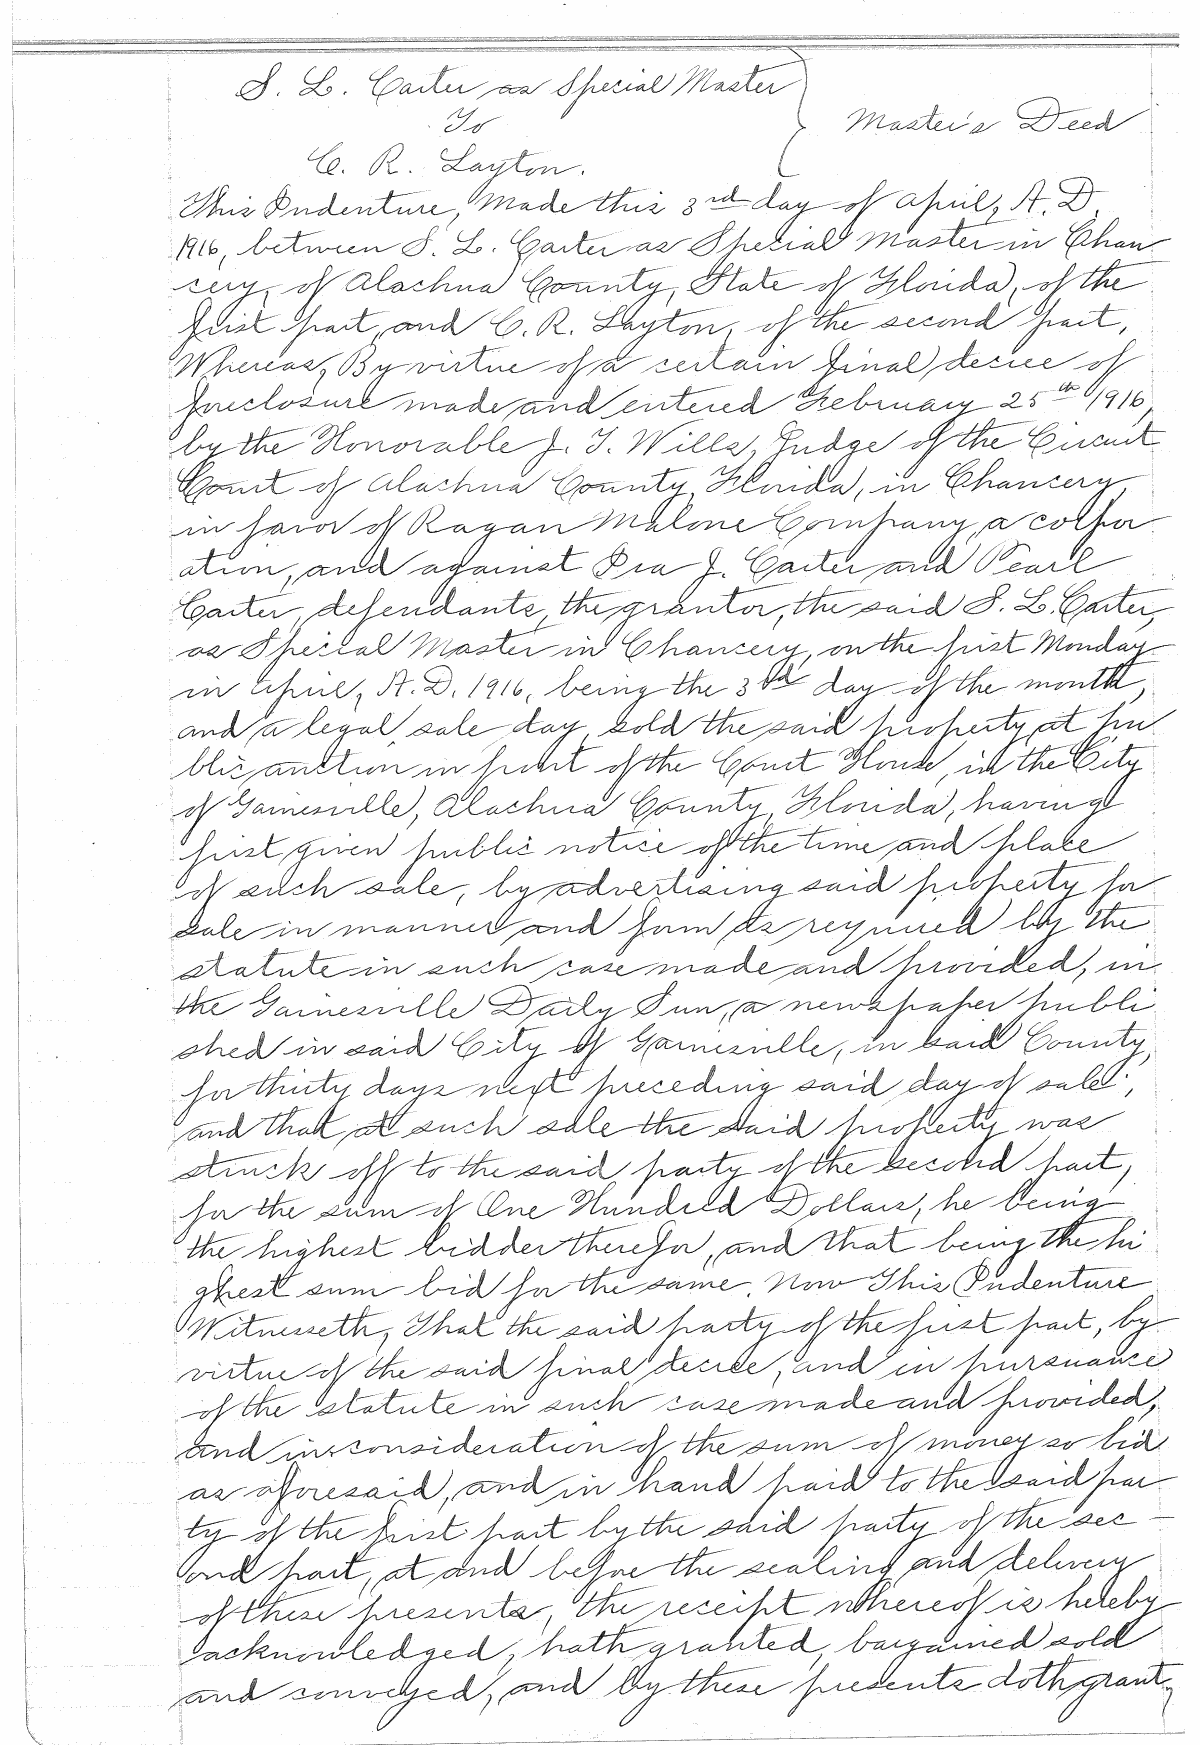 S. L. Carter as Special Master
To
Master's Deed
C. R. Layton.
This Indenture, Made this 3rd day of April, A. D.
1916, between S. L. Carter as Special Master in Chan
cery, of Alachua County, State of Florida, of the
first part, and C. R. Layton, of the second part,
Whereas, By virtue of a certain final decree of
foreclosure made and entered February 25th 1916,
by the Honorable J. T. Wills, Judge of the Circuit
Court of Alachua County, Florida, in Chancery,
in favor of Ragan Malone Company, a corpor
ation, and against Ira J. Carter and Pearl
Carter, defendants, the grantor, the said S. L. Carter,
as Special Master in Chancery, on the first Monday
in April, A. D. 1916, being the 3rd day of the month,
and a legal sale day, sold the said property at pu
blic auction in front of the Court House, in the City
of Gainesville, Alachua County, Florida, having
first given public notice of the time and place
of such sale, by advertising said property for
sale in manner and form as required by the
statute in such case made and provided, in
the Gainesville Daily Sun, a newspaper publi
shed in said City of Gainesville, in said County,
for thirty days next preceding said day of sale;
and that at such sale the said property was
struck off to the said party of the second part,
for the sum of One Hundred Dollars, he being
the highest bidder therefor, and that being the hi
ghest sum bid for the same. Now This Indenture
Witnesseth, That the said party of the first part, by
virtue of the said final decree, and in pursuance
of the statute in such case made and provided,
and in consideration of the sum of money so bid
as aforesaid, and in hand paid to the said par
ty of the first part by the said party of the sec-
ond part, at and before the sealing and delivery
of these presents, the receipt whereof is hereby
acknowledged, hath granted, bargained sold
and conveyed, and by these presents doth grant,